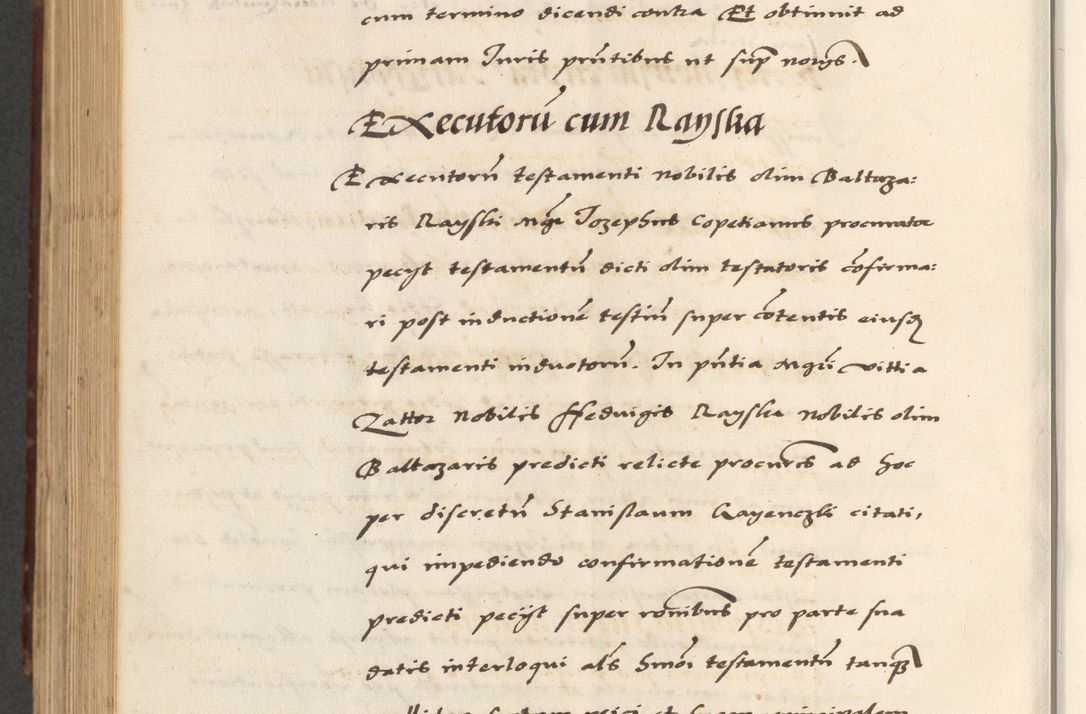 cum termino dicendi contra Et obtinuit ad
primam Iuris pñtibus ut sup̃ norg̃s.
EXecutorũ cum Rayska
EXecutorũ testamenti nobilis olim Baltaza:
ris Rayski Mgr̃ Iozephus Copetianus procurator
pecÿt testamentũ dicti olim testatoris cõfirma:
ri post inductionẽ testiũ super cõtentis eiusdẽ
testamenti inductorũ. In pñtia Mgri vitti a
Zattor Nobilis Hedvigis Rayska nobilis olim
Baltazaris predicti relicte procuris ad hoc
per discretũ Stanislaum Rayenczki citati,
qui impediendo confirmationẽ testamenti
predicti pecÿt super rõnibus pro parte sua
datis interloqui als̃ hmõi testamentũ tanq̃